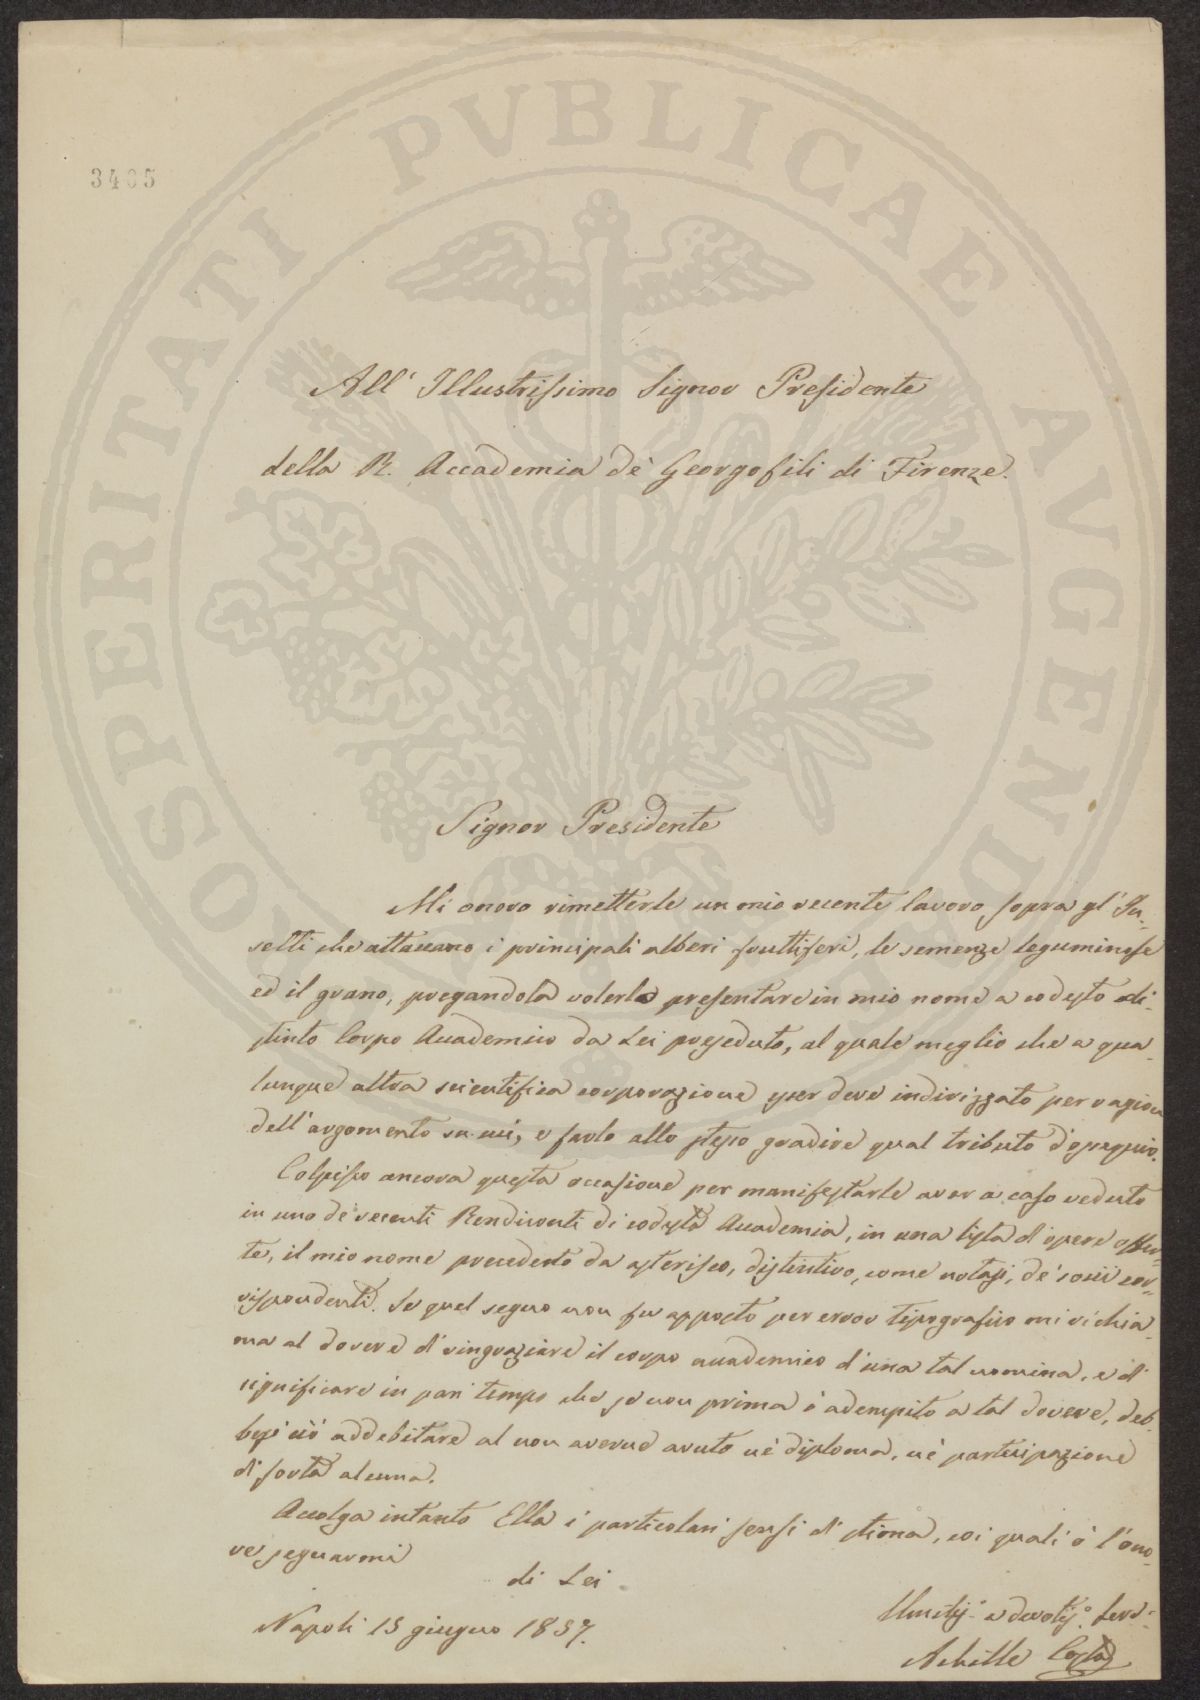 3405
PROSPERITATI PVBLICAE AVGENDAE
All' Illustrissimo Signor Presidente
della R. Accademia de' Georgofili di Firenze.
Signor Presidente
Mi onoro rimetterle un mio recente lavoro sopra gl'In-
setti che attaccano i principali alberi fruttiferi, le semenze leguminose
ed il grano, pregandola volerlo presentare in mio nome a codesto di-
stinto Corpo Accademico da Lei preseduto, al quale meglio che a qua-
lunque altra scientifica corporazione esser deve indirizzato per ragion
dell'argomento su cui, e farlo allo stesso gradire qual tributo d'ossequio.
Colpisco ancora questa occasione per manifestarle aver a caso veduto
in uno de' recenti Rendiconti di codesta Accademia, in una lista d'opere offer-
te, il mio nome preceduto da asterisco, distintivo, come notasi, de' socii cor-
rispondenti. Se quel segno non fu apposto per error tipografico mi richia-
ma al dovere di ringraziare il corpo accademico d'una tal nomina, e di
significare in pari tempo che se non prima ò adempito a tal dovere, deb-
besi ciò addebitare al non averne avuto nè diploma, nè partecipazione
di sorta alcuna.
Accolga intanto Ella i particolari sensi di stima, coi quali ò l'ono-
re segnarmi
di Lei
Napoli 15 giugno 1857.
Umiliss.o e devotiss.o serv.
Achille Costa